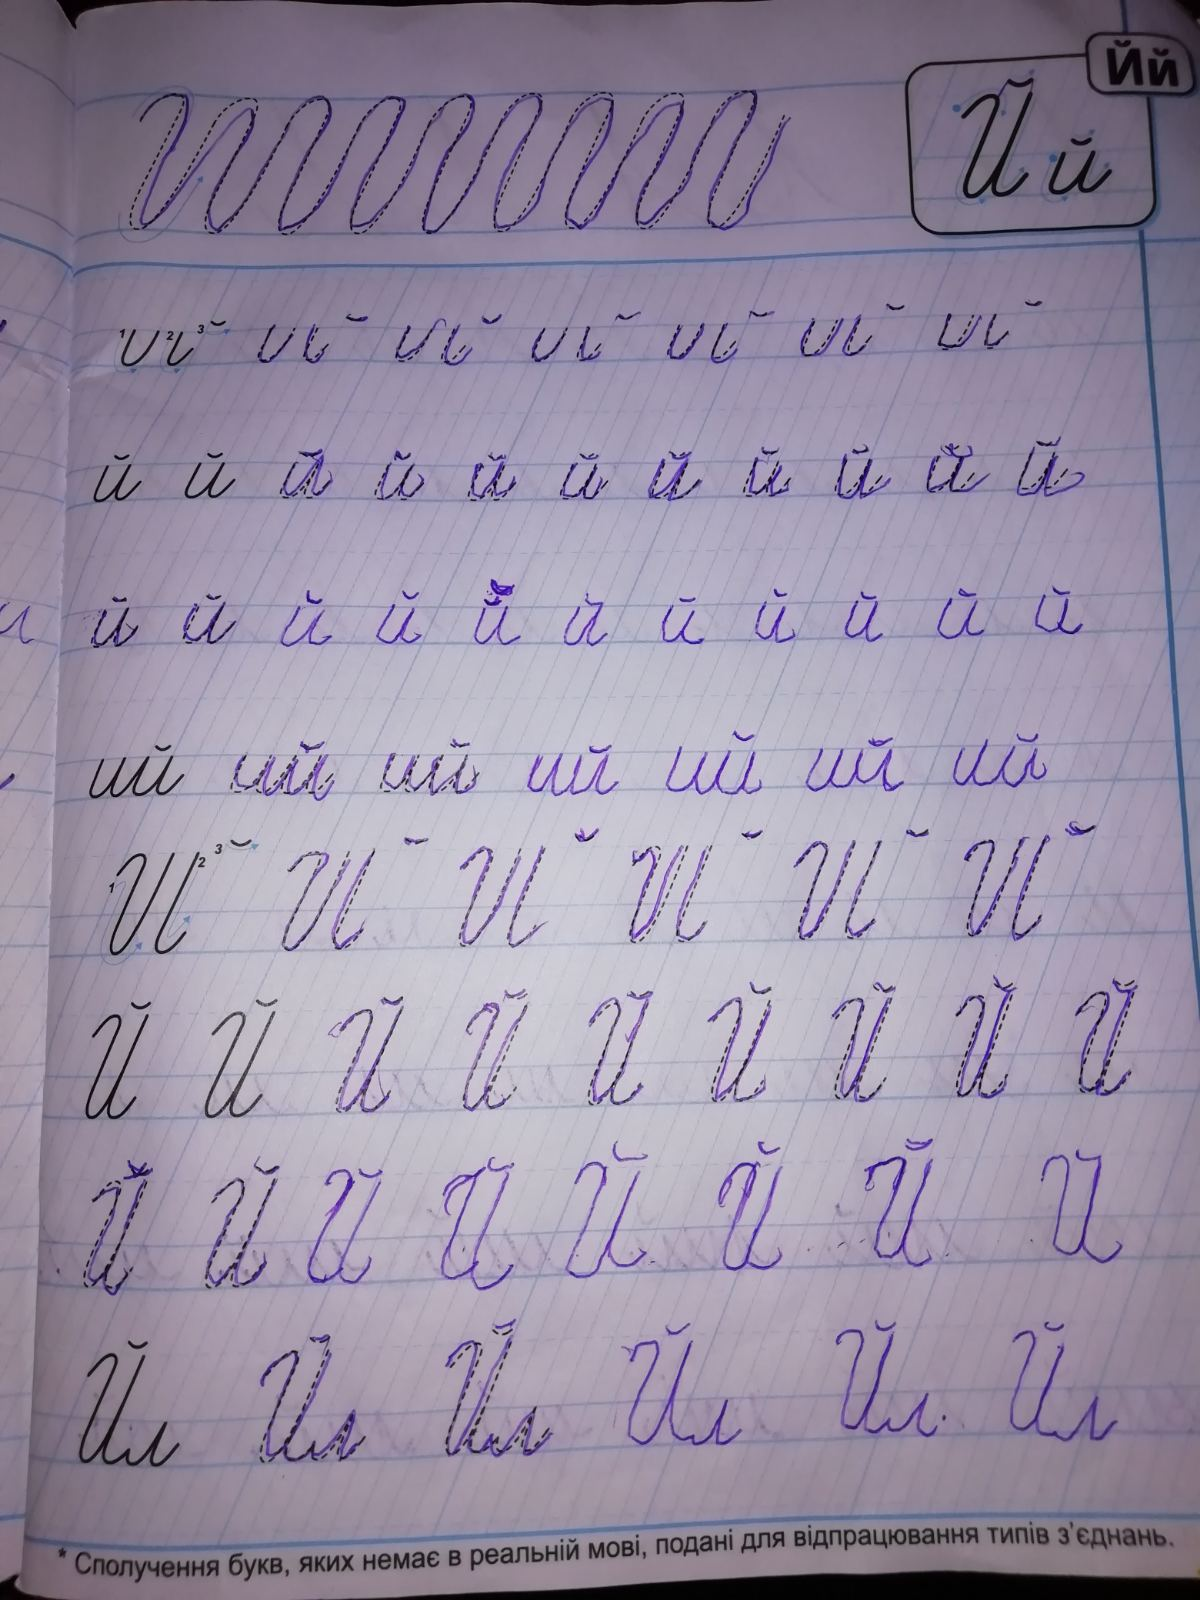 Йй
Й й
1 2 3
й й й й й й й й й й й
й й й й й й й й й й й
ий ий ий ий ий ий ий
1 2 3
Й Й Й Й Й Й Й Й Й
Й Й Й Й Й Й Й Й
Йл Йл Йл Йл Йл Йл
* Сполучення букв, яких немає в реальній мові, подані для відпрацювання типів з'єднань.